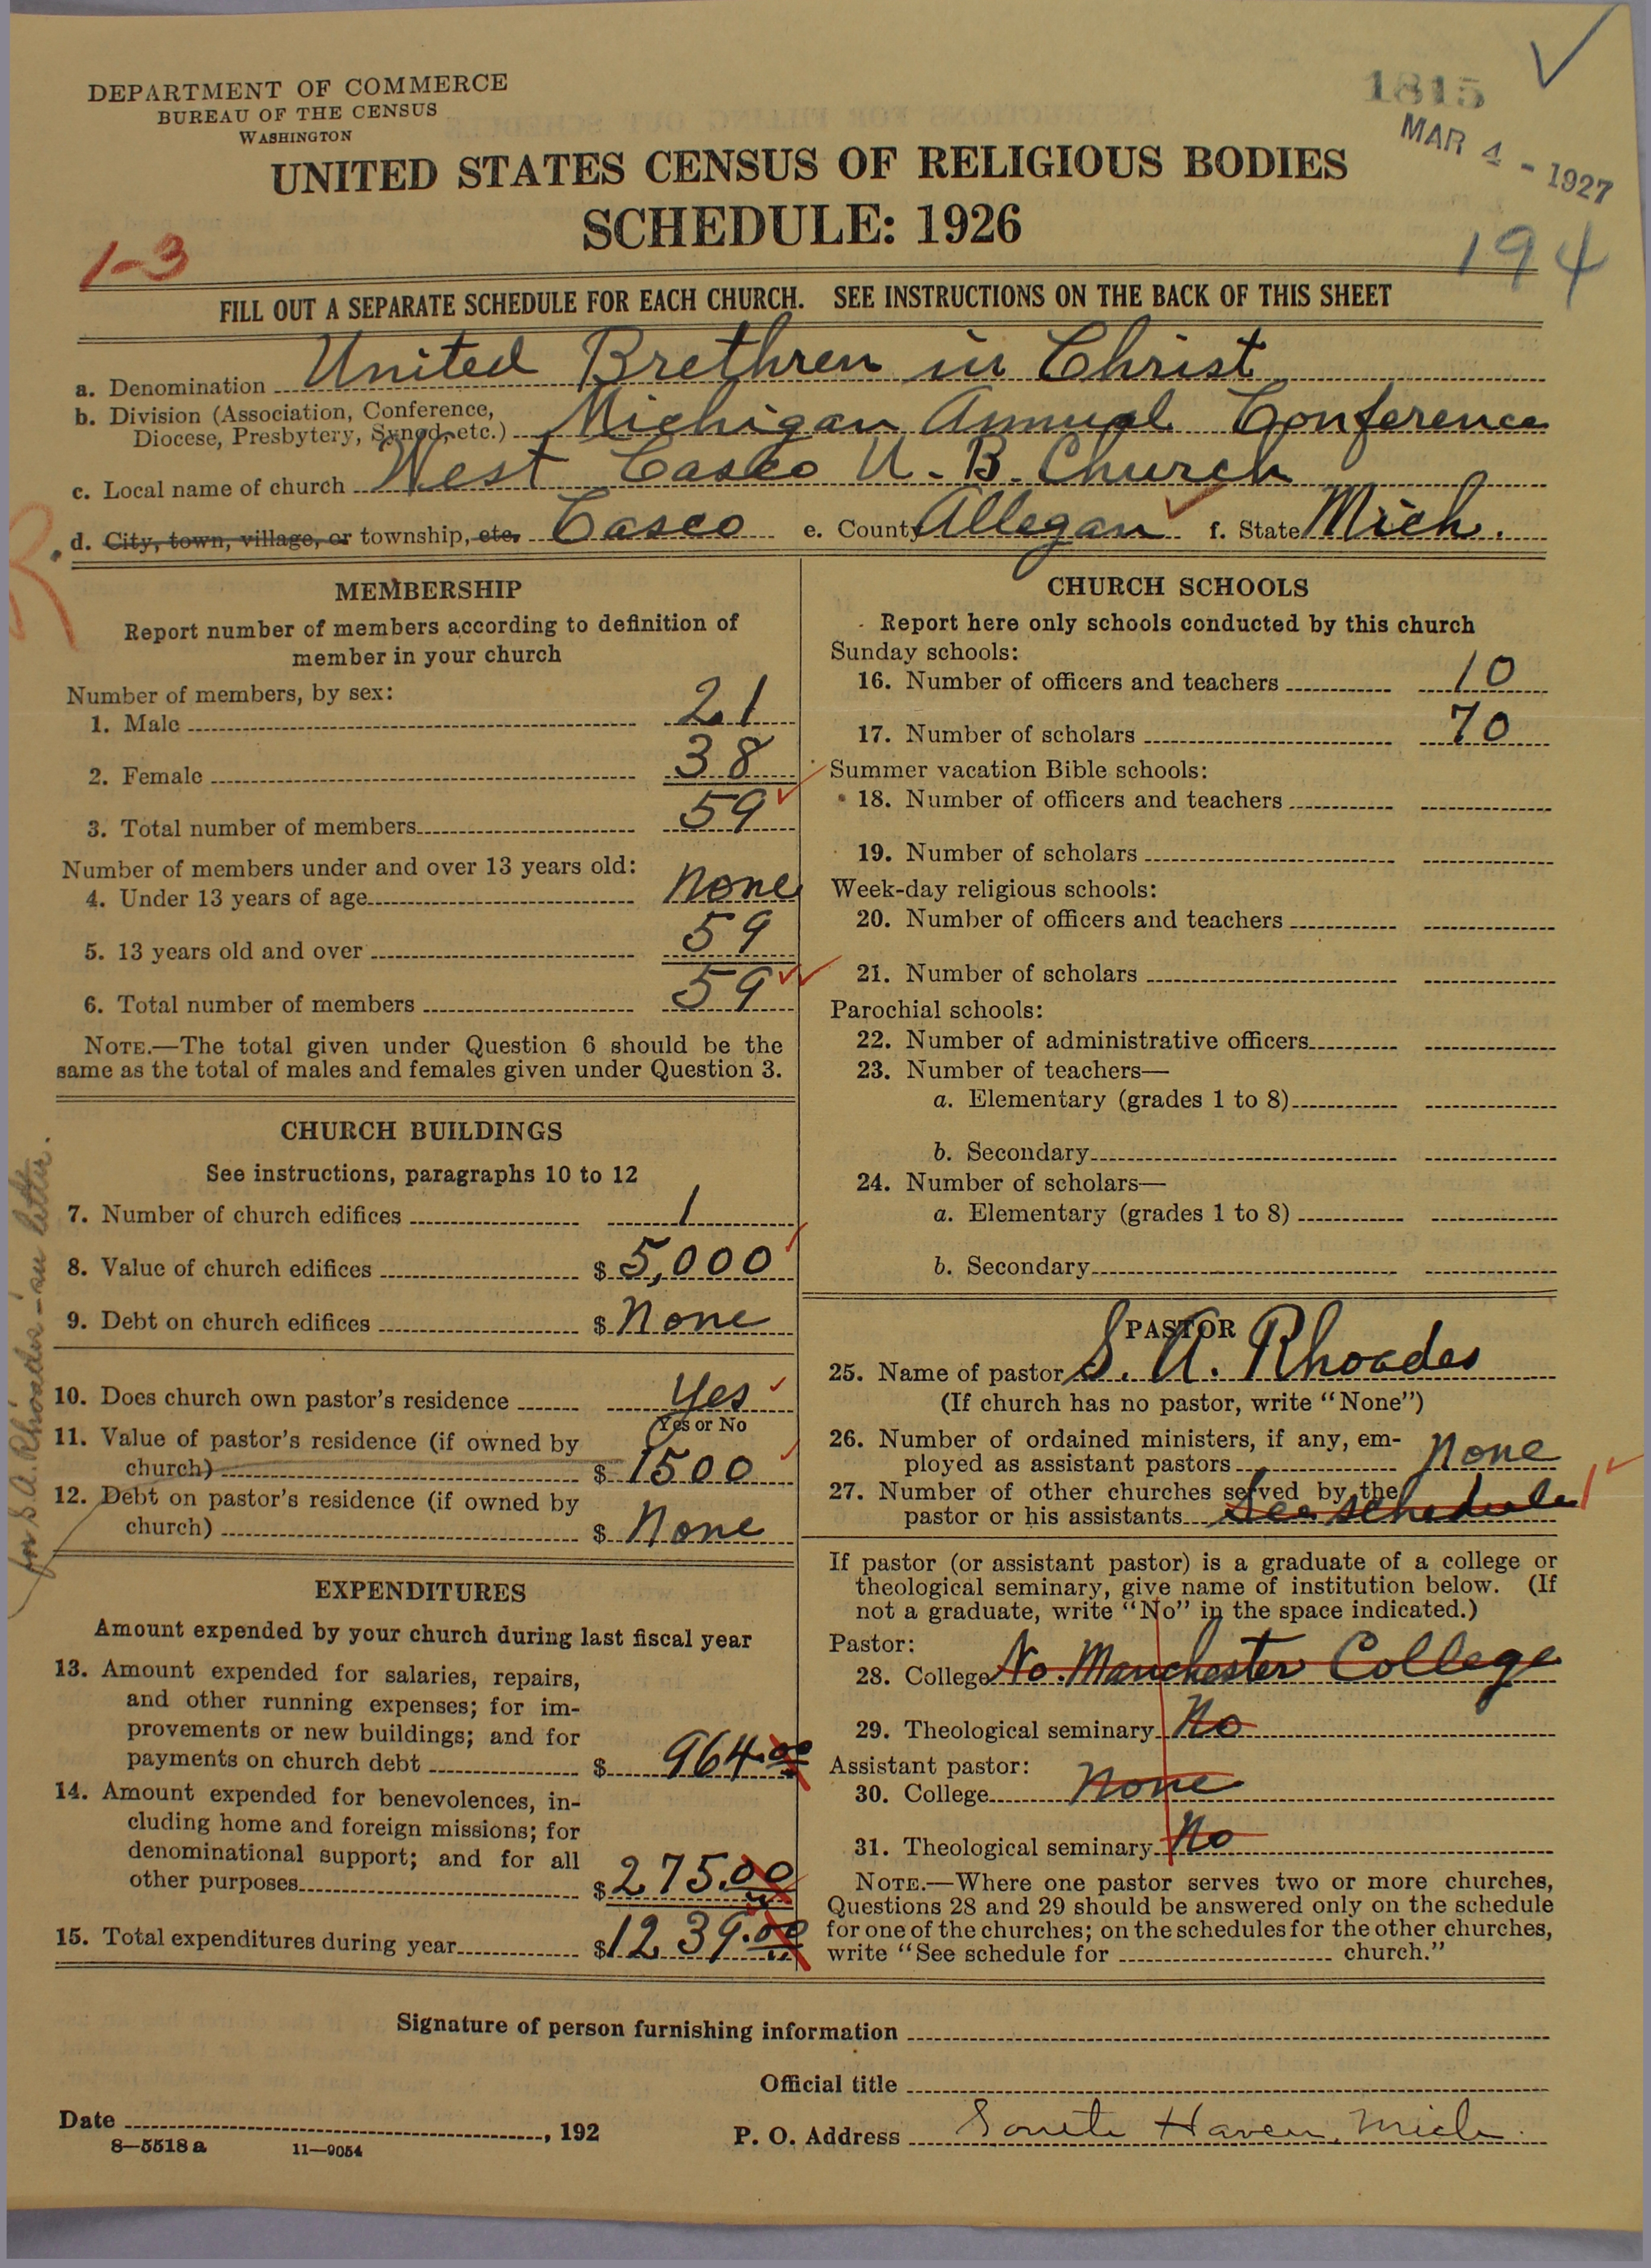 DEPARTMENT OF COMMERCE
BUREAU OF THE CENSUS
WASHINGTON
1815
MAR 4 - 1927
UNITED STATES CENSUS OF RELIGIOUS BODIES
SCHEDULE: 1926
1-3
194
FILL OUT A SEPARATE SCHEDULE FOR EACH CHURCH. SEE INSTRUCTIONS ON THE BACK OF THIS SHEET
a. Denomination United Brethren in Christ
b. Division (Association, Conference,
Diocese, Presbytery, Synod, etc.) Michigan Annual Conference
c. Local name of church West Casco U. B. Church
d. City, town, village, or township, etc. Casco e. County Allegan f. State Mich.
R
MEMBERSHIP
Report number of members according to definition of
member in your church
Number of members, by sex:
1. Male 21
2. Female 38
3. Total number of members 59
Number of members under and over 13 years old:
4. Under 13 years of age none
5. 13 years old and over 59
6. Total number of members 59
NOTE.—The total given under Question 6 should be the
same as the total of males and females given under Question 3.
CHURCH BUILDINGS
See instructions, paragraphs 10 to 12
7. Number of church edifices 1
8. Value of church edifices $ 5,000
9. Debt on church edifices $ None
10. Does church own pastor's residence Yes
Yes or No
11. Value of pastor's residence (if owned by
church) $ 1500
12. Debt on pastor's residence (if owned by
church) $ None
for S. A. Rhoades - in letter.
EXPENDITURES
Amount expended by your church during last fiscal year
13. Amount expended for salaries, repairs,
and other running expenses; for im-
provements or new buildings; and for
payments on church debt $ 964.00
14. Amount expended for benevolences, in-
cluding home and foreign missions; for
denominational support; and for all
other purposes $ 275.00
15. Total expenditures during year $ 1239.00
CHURCH SCHOOLS
Report here only schools conducted by this church
Sunday schools:
16. Number of officers and teachers 10
17. Number of scholars 70
Summer vacation Bible schools:
18. Number of officers and teachers
19. Number of scholars
Week-day religious schools:
20. Number of officers and teachers
21. Number of scholars
Parochial schools:
22. Number of administrative officers
23. Number of teachers—
a. Elementary (grades 1 to 8)
b. Secondary
24. Number of scholars—
a. Elementary (grades 1 to 8)
b. Secondary
PASTOR
25. Name of pastor S. A. Rhoades
(If church has no pastor, write "None")
26. Number of ordained ministers, if any, em-
ployed as assistant pastors none
27. Number of other churches served by the
pastor or his assistants See schedule 1
If pastor (or assistant pastor) is a graduate of a college or
theological seminary, give name of institution below. (If
not a graduate, write "No" in the space indicated.)
Pastor:
28. College No. Manchester College
29. Theological seminary No
Assistant pastor:
30. College None
31. Theological seminary No
NOTE.—Where one pastor serves two or more churches,
Questions 28 and 29 should be answered only on the schedule
for one of the churches; on the schedules for the other churches,
write "See schedule for church."
Signature of person furnishing information
Official title
Date , 192
P. O. Address South Haven, Mich.
8—5518 a 11—9054